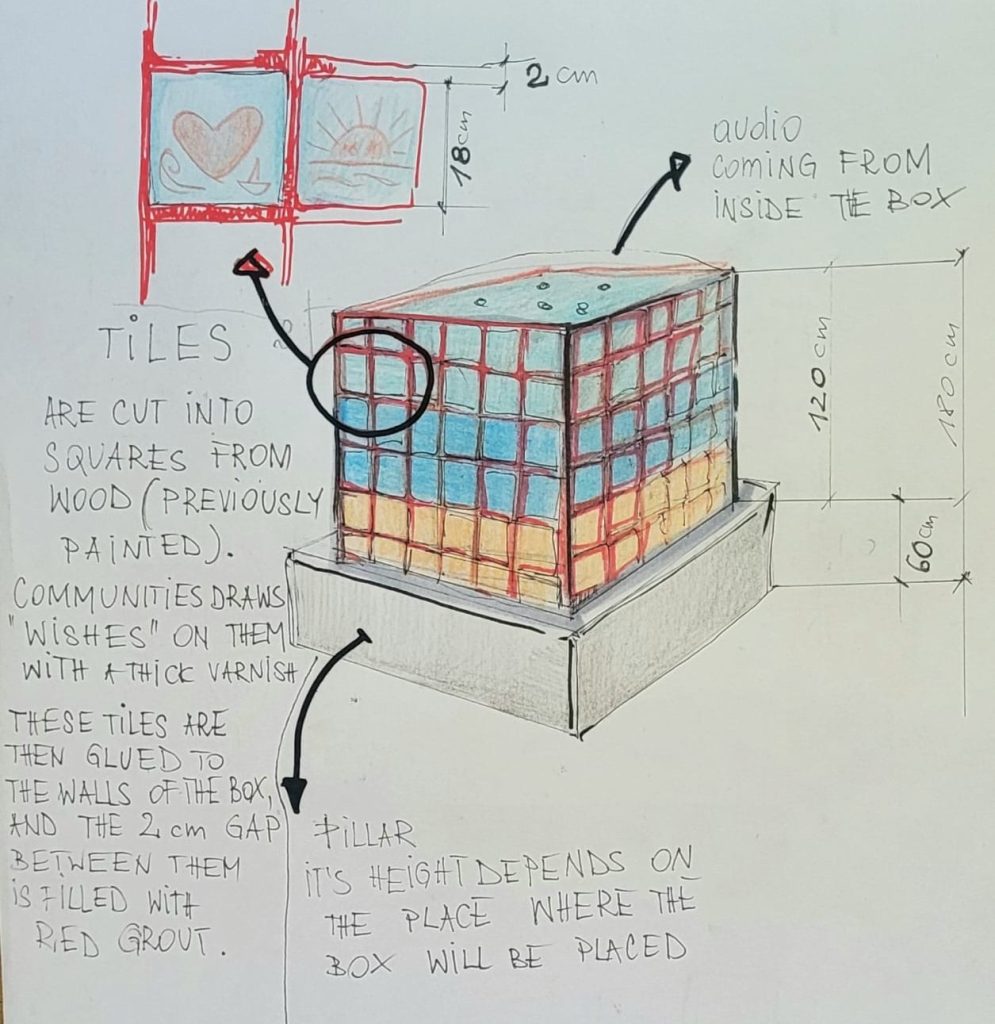 2 cm
18 cm
audio
COMING FROM
INSIDE THE BOX
TILES
ARE CUT INTO
SQUARES FROM
WOOD (PREVIOUSLY
PAINTED).
COMMUNITIES DRAWS
"WISHES" ON THEM
WITH A THICK VARNISH
THESE TILES ARE
THEN GLUED TO
THE WALLS OF THE BOX,
AND THE 2 cm GAP
BETWEEN THEM
IS FILLED WITH
RED GROUT.
120 cm
180 cm
60 cm
PILLAR
IT'S HEIGHT DEPENDS ON
THE PLACE WHERE THE
BOX WILL BE PLACED